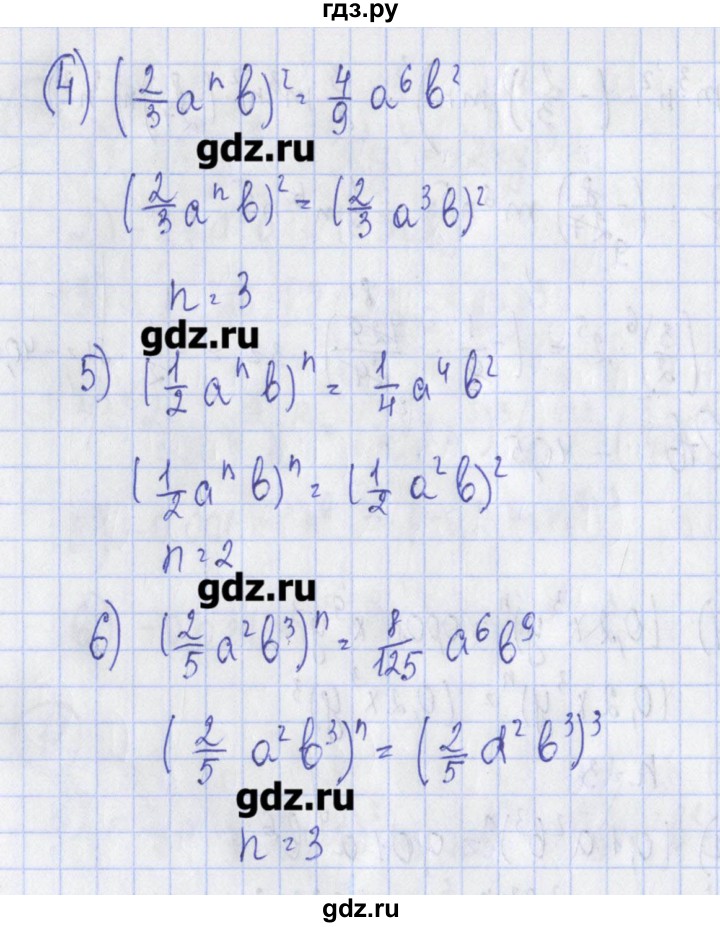 гдз.ру
4) (2/3 aⁿ b)² = 4/9 a⁶ b²
gdz.ru
(2/3 aⁿ b)² = (2/3 a³ b)²
n = 3
gdz.ru
5) (1/2 aⁿ b)ⁿ = 1/4 a⁴ b²
(1/2 aⁿ b)ⁿ = (1/2 a² b)²
n = 2
gdz.ru
6) (2/5 a² b³)ⁿ = 8/125 a⁶ b⁹
(2/5 a² b³)ⁿ = (2/5 a² b³)³
gdz.ru
n = 3
gdz.ru